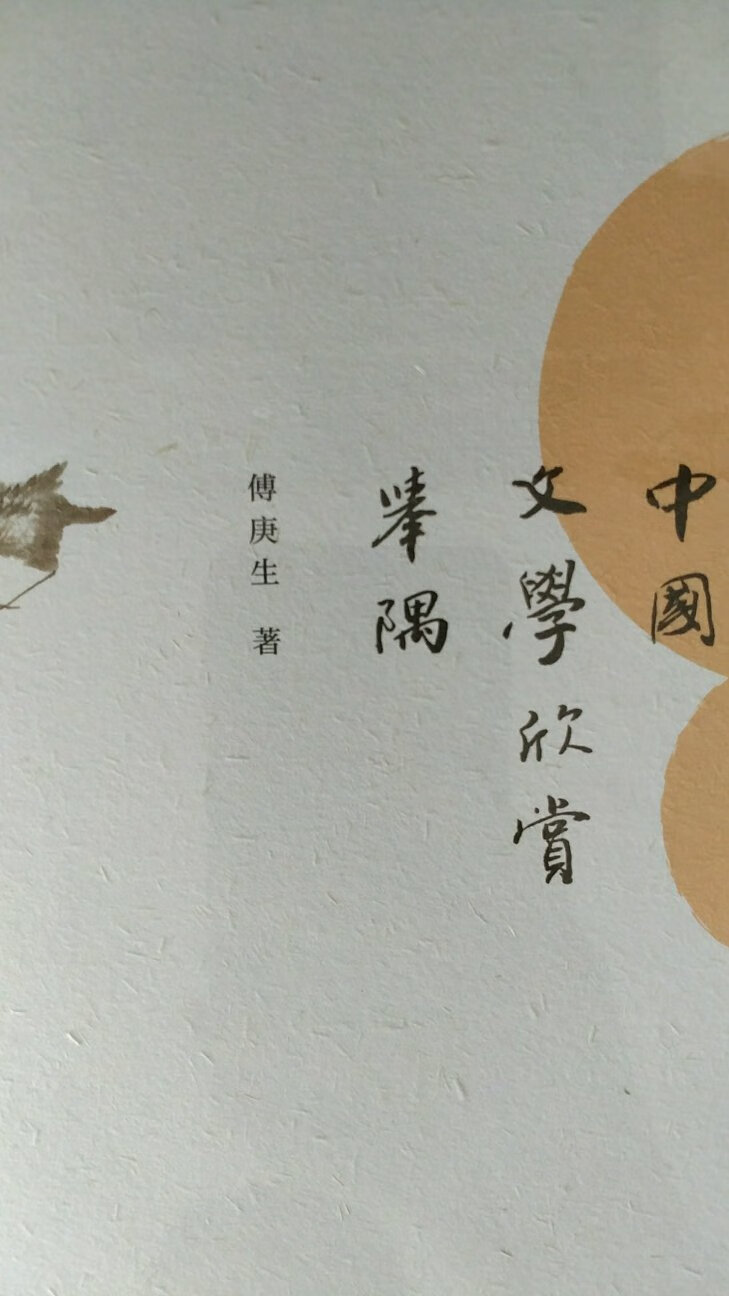 中國
文學欣賞
舉隅
傅庚生 著